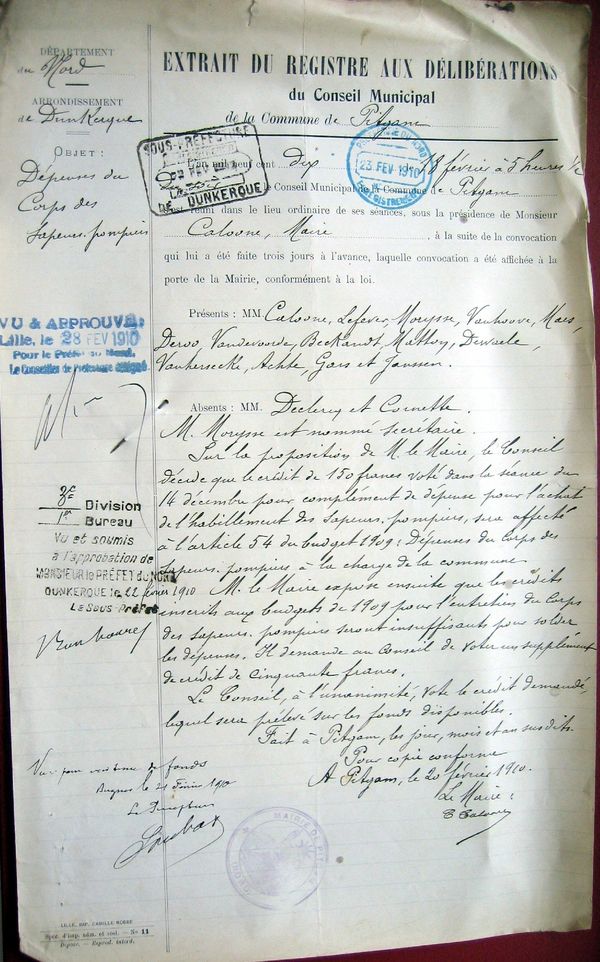 DÉPARTEMENT
du Nord
ARRONDISSEMENT
de Dunkerque
OBJET :
Dépenses du
Corps des
Sapeurs-pompiers
EXTRAIT DU REGISTRE AUX DÉLIBÉRATIONS
du Conseil Municipal
de la Commune de Pitgam
SOUS-PRÉFECTURE
DE DUNKERQUE
23 FEV 1910
L'an mil neuf cent dix 18 février à 5 heures ½
le Conseil Municipal de la Commune de Pitgam
s'est réuni dans le lieu ordinaire de ses séances, sous la présidence de Monsieur
Caloone, Maire, à la suite de la convocation
qui lui a été faite trois jours à l'avance, laquelle convocation a été affichée à la
porte de la Mairie, conformément à la loi.
Présents : MM. Caloone, Lefever, Morysse, Vanhoove, Maes,
Deroo, Vandevoorde, Beckandt, Matton, Dewaele,
Vanhersecke, Achte, Gars et Janssen.
Absents : MM. Declercq et Cornette.
M. Morysse est nommé secrétaire.
Sur la proposition de M. le Maire, le Conseil
décide que le crédit de 150 francs voté dans la séance du
14 décembre pour complément de dépense pour l'achat
de l'habillement des Sapeurs-pompiers, sera affecté
à l'article 54 du budget 1909 : Dépenses du Corps des
Sapeurs-pompiers à la charge de la commune
M. le Maire expose ensuite que les crédits
inscrits aux budgets de 1909 pour l'entretien du Corps
des Sapeurs-pompiers seront insuffisants pour solder
les dépenses. Il demande au Conseil de voter un supplément
de crédit de Cinquante francs.
Le Conseil, à l'unanimité, vote le crédit demandé,
lequel sera prélevé sur les fonds disponibles.
Fait à Pitgam, les jour, mois et an susdits.
Pour copie conforme
A Pitgam, le 20 février 1910.
Le Maire :
C Caloone
VU & APPROUVÉ:
Lille, le 28 FEV 1910
Pour le Préfet du Nord,
Le Conseiller de Préfecture délégué,
3e Division
1er Bureau
Vu et soumis
à l'approbation de
MONSIEUR le PRÉFET du NORD
DUNKERQUE le 22 février 1910
Le Sous-Préfet
Vu pour existence de fonds
Bergues le 21 Février 1910
Le Percepteur
MAIRIE DE PITGAM
LILLE, IMP. CAMILLE ROBBE
Spéc. d'imp. adm. et scol. — No 11
Dépose. — Reprod. interd.